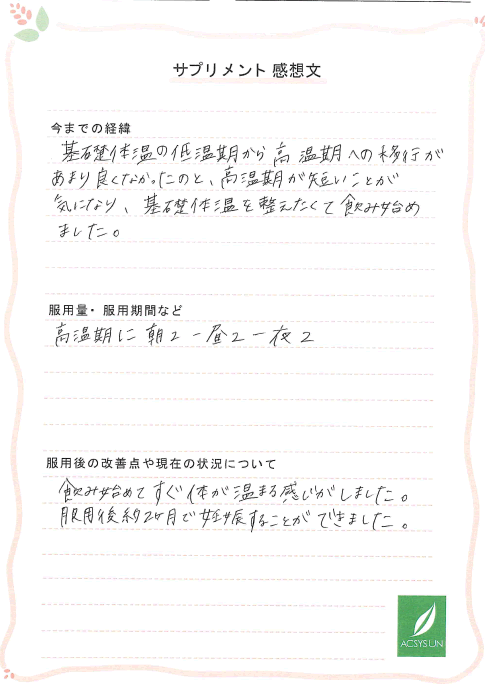 サプリメント 感想文
今までの経緯
基礎体温の低温期から高温期への移行が
あまり良くなかったのと、高温期が短いことが
気になり、基礎体温を整えたくて飲み始め
ました。
服用量・服用期間など
高温期に 朝2 ー 昼2 ー 夜2
服用後の改善点や現在の状況について
飲み始めてすぐ体が温まる感じがしました。
服用後約2ヶ月で妊娠することができました。
ACSYSUN